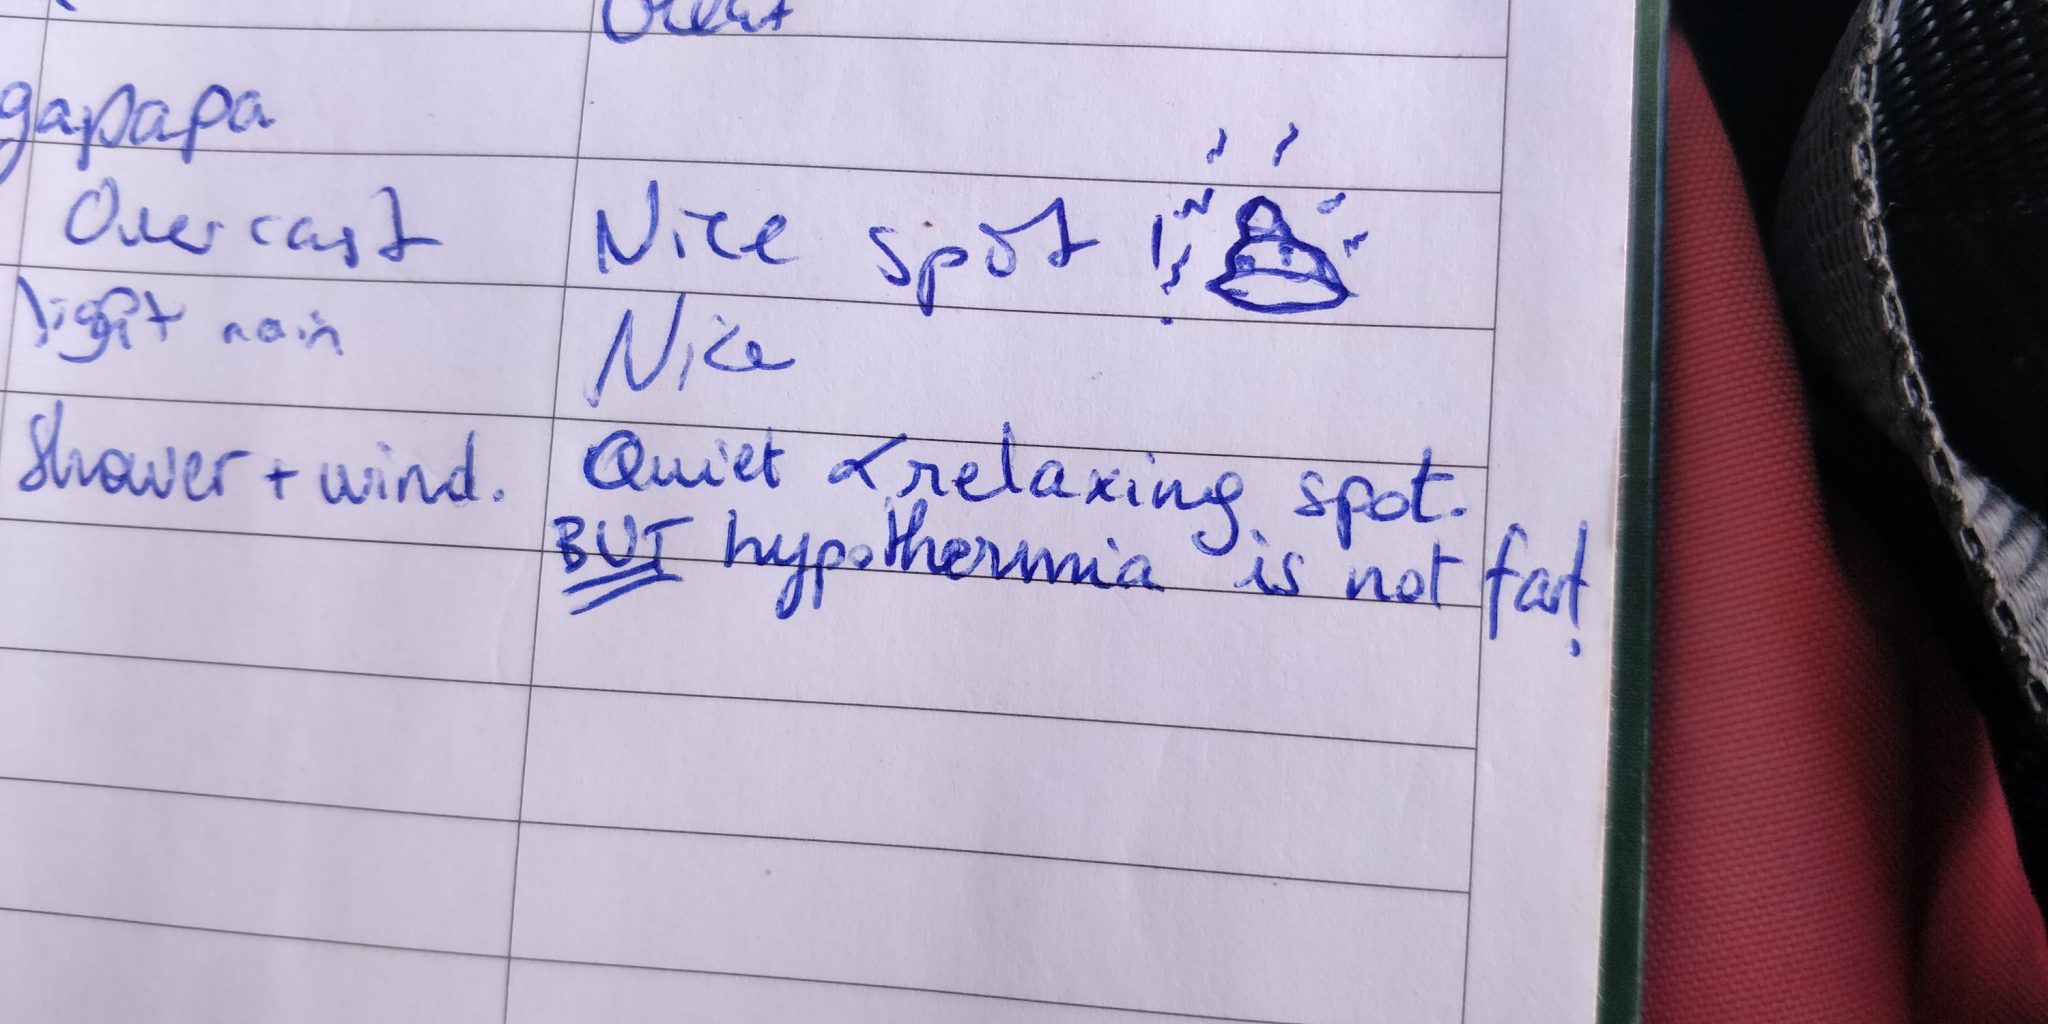 Great
gapapa
Overcast Nice spot !
light rain Nice
Shower + wind. Quiet & relaxing spot.
BUT hypothermia is not far!